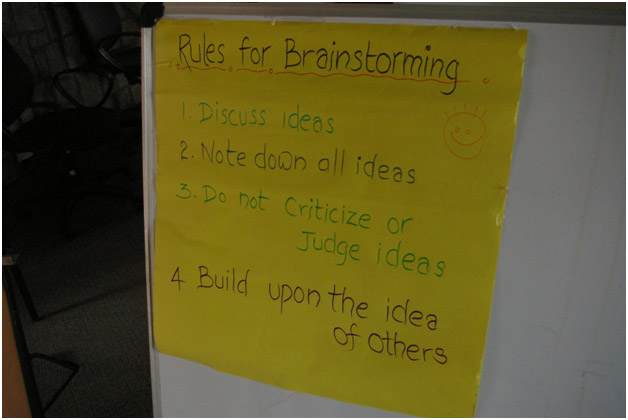 Rules for Brainstorming
1. Discuss ideas
2. Note down all ideas
3. Do not criticize or
Judge ideas
4 Build upon the idea
of others